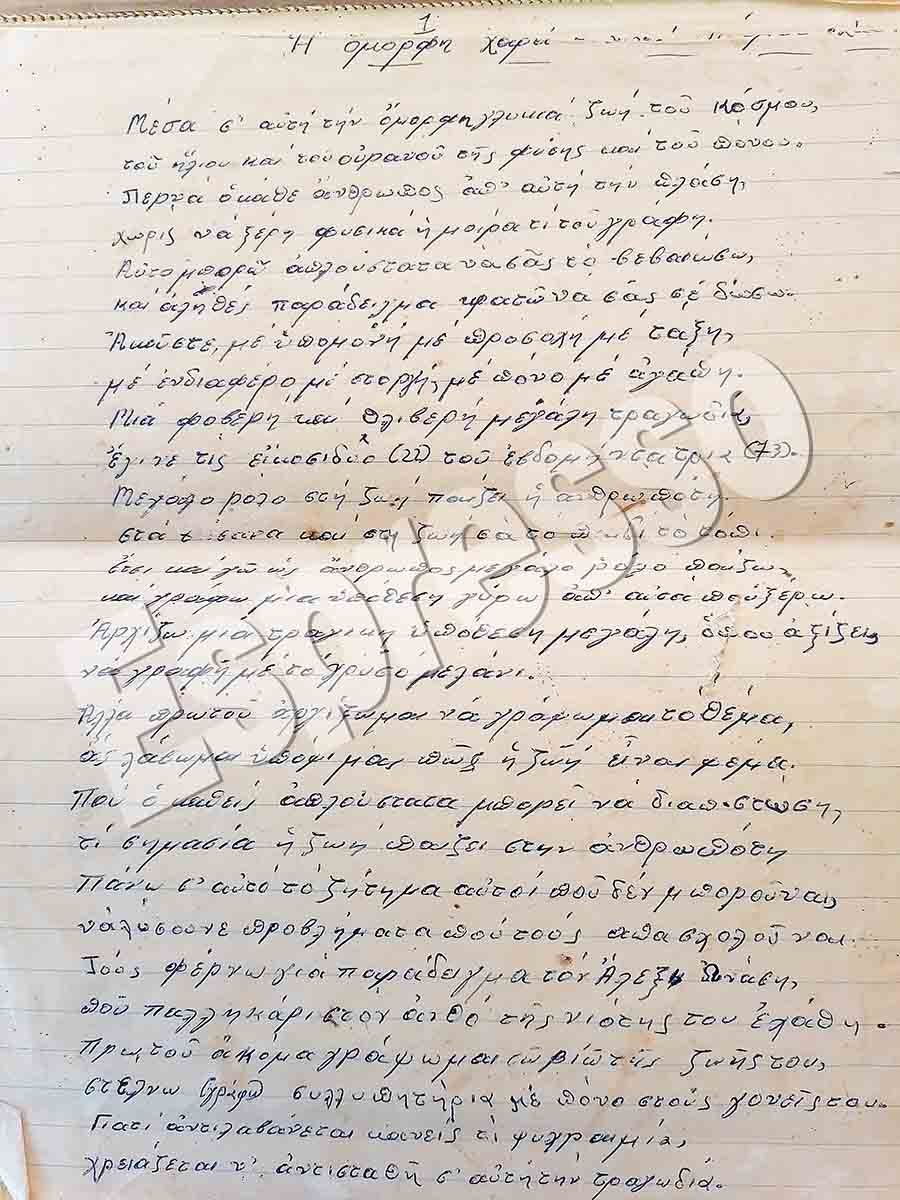 1
Ἡ ὄμορφη χαρά
Μέσα σ' αὐτή τήν ὄμορφη γλυκιά ζωή τοῦ Κόσμου,
τοῦ ἥλιου καί τοῦ οὐρανοῦ τῆς φύσης καί τοῦ πόνου.
Περνά ὁ κάθε ἄνθρωπος ἀπ' αὐτή τήν πλάση,
χωρίς νά ξέρη φυσικά ἡ μοίρα τί τοῦ γράφη.
Αὐτό μπορῶ ἁπλούστατα νά σᾶς τό βεβαιώσω,
καί ἀληθές παράδειγμα νά σᾶς
Ἀκοῦστε, μέ ὑπομονή μέ προσοχή μέ τάξη,
μέ ἐνδιαφέρο μέ στοργή, μέ πόνο μέ ἀγάπη.
Μιά φοβερή καί θλιβερή μεγάλη τραγωδία,
ἔγινε τίς εἰκοσιδύο (22) τοῦ ἑβδομήντατρία (73).
Μεγάλο ρόλο στή ζωή παίζει ἡ ἀνθρωπότη
στά καί στή ζωή σά τό τό τόπι.
ἔτσι καί γώ ὡς ἄνθρωπος μεγάλο ρόλο παίζω
καί γράφω μιά ὑπόθεση γύρω ἀπ' αὐτά πού ξέρω.
Ἀρχίζω μιά τραγική ὑπόθεση μεγάλη, ἀξίζει,
νά γραφῆ μέ τό χρυσό μελάνι.
Ἀλλά πρωτοῦ ἀρχίζωμαι νά γράφωμαι τό θέμα,
ἄς λάβωμαι ὑπόψι μας πῶς ἡ ζωή εἶναι ψέμα.
Πού ὁ καθείς ἁπλούστατα μπορεῖ νά διαπιστώση,
τί σημασία ἡ ζωή παίζει στήν ἀνθρωπότη
Πάνω σ' αὐτό τό ζήτημα αὐτοί πού δέν μποροῦναι,
νά λύσουνε προβλήματα πού τούς ἀπασχολοῦναι.
Τούς φέρνω γιά παράδειγμα τόν Ἀλέξη Ὠνάση,
πού παλληκάρι στόν ἀνθό τῆς νιότης του ἐχάθη.
Πρωτοῦ ἀκόμα γράψωμαι τῆς ζωῆς του,
στέλνω (γράφω) συλλυπητήρια μέ πόνο στούς γονεῖς του.
Γιατί ἀντιλαβάνεται κανείς τί ψυχραιμία,
χρειάζεται ν' ἀντισταθῆ σ' αὐτή τήν τραγωδία.
Espresso